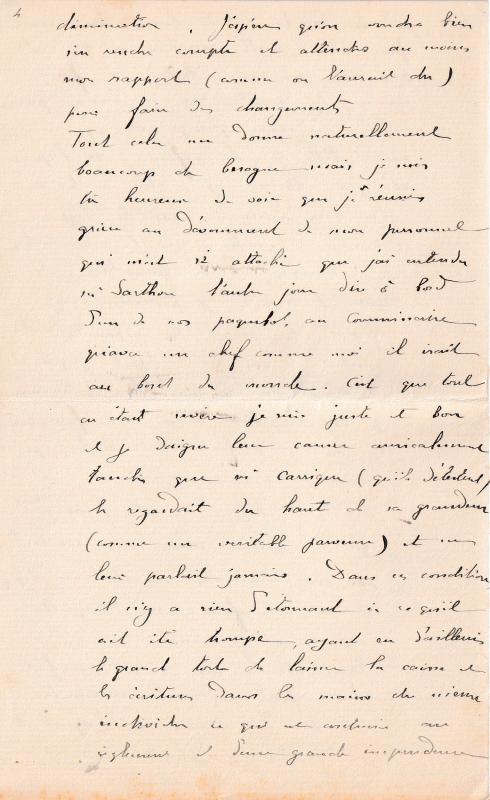 4
diminution. J'espère qu'on voudra bien
s'en rendre compte et attendre au moins
mon rapport (comme on l'aurait dû)
pour faire des changements
Tout cela me donne naturellement
beaucoup de besogne mais je suis
très heureux de voir que je réussis
grâce au dévouement de mon personnel
qui m'est si attaché que j'ai entendu
M Sarthou l'autre jour dire à bord
d'un de nos paquebots, au Commissaire
qu'avec un chef comme moi il irait
au bout du monde. C'est que tout
en étant sévère je suis juste et bon
et je daigne leur causer amicalement
tandis que M Carrigue (qu'ils détestent)
les regardait du haut de sa grandeur
(comme un véritable parvenu) et ne
leur parlait jamais. Dans ces conditions
il n'y a rien d'étonnant à ce qu'il
ait été trompé, ayant eu d'ailleurs
le grand tort de laisser la caisse et
les écritures dans les mains du même
individu ce qui est contraire au
règlement et d'une grande imprudence